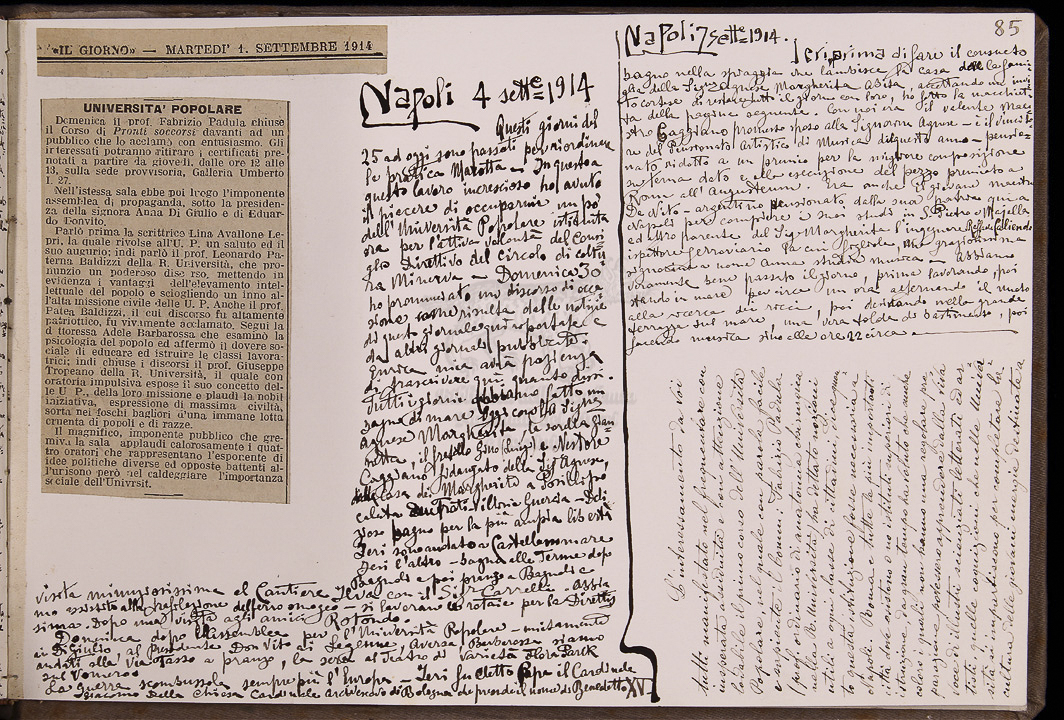 «IL GIORNO» — MARTEDI' 1. SETTEMBRE 1914
UNIVERSITA' POPOLARE
Domenica il prof. Fabrizio Padula chiuse
il Corso di Pronti soccorsi davanti ad un
pubblico che lo acclamò con entusiasmo. Gli
interessati potranno ritirare i certificati pre-
notati a partire da giovedì, dalle ore 12 alle
13, sulla sede provvisoria, Galleria Umberto
I. 27.
Nell'istessa sala ebbe poi luogo l'imponente
assemblea di propaganda, sotto la presiden-
za della signora Anna Di Giulio e di Eduar-
do Donvito.
Parlò prima la scrittrice Lina Avallone Le-
pri, la quale rivolse all'U. P. un saluto ed il
suo augurio; indi parlò il prof. Leonardo Pa-
terna Baldizzi della R. Università, che pro-
nunziò un poderoso discorso, mettendo in
evidenza i vantaggi dell'elevamento intel-
lettuale del popolo e sciogliendo un inno al-
l'alta missione civile delle U. P. Anche il prof.
Pater. Baldizzi, il cui discorso fu altamente
patriottico, fu vivamente acclamato. Seguì la
dottoressa Adele Barbarossa che esaminò la
psicologia del popolo ed affermò il dovere so-
ciale di educare ed istruire le classi lavora-
trici; indi chiuse i discorsi il prof. Giuseppe
Tropeano della R. Università, il quale con
oratoria impulsiva espose il suo concetto del-
le U P., della loro missione e plaudì la nobile
iniziativa, espressione di massima civiltà,
sorta nei foschi bagliori d'una immane lotta
cruenta di popoli e di razze.
Il magnifico, imponente pubblico che gre-
miva la sala applaudì calorosamente i quat-
tro oratori che rappresentano l'esponente di
idee politiche diverse ed opposte battenti al-
l'unisono però nel caldeggiare l'importanza
sociale dell'Universit.
Napoli 4 sette 1914
Questi giorni dal
25 ad oggi sono passati per riordinare
la pratica Marotta — In questo a
questo lavoro increscioso ho avuto
il piacere di occuparmi un po'
dell'Università Popolare istituita
ora per l'attiva volontà del Consi
glio Direttivo del circolo di coltu
ra Minerva — Domenica 30
ho pronunziato un discorso di occa
sione come risulta dalle notizie
di questo giornale qui riportate e
da altri giornali pubblicate.
Enrica mia avrà pazienza
di trascrivere qui quanto dissi.
Tutti i giorni abbiamo fatto un
bagno di mare con la Sigra
Agnese Margherita la sorella Gian
netta, il fratello Gino (Luigi) e Nestore
Caggiano fidanzato della Siga Agnese,
della casa dei Margherita a Posillipo
calata Vittoria Guerra — Deli
zioso bagno per la più ampia libertà
Ieri sono andato a Castellammare
Ieri l'altro — bagno alle Terme dopo
Bagnoli e poi pranzo a Bagnoli e
visita minuziosissima al Cantiere Ilva con il Sigr Carrella. Abbia
mo assistito alla trafilazione del ferro omogeo — si lavorano le rotaie per la Direttis
sima. Dopo una visita agli amici Rotondo.
Domenica dopo l'Assemblea per l'Università Popolare — unitamente
ai Di Giulio, al Presidente Don Vito ai Legenne, Aversa, Barbarossa siamo
andati alla Via Tasso a pranzo, la sera al Teatro di Varietà Flora Park
sul Vomero.
La guerra scombussola sempre più l'Europa — Ieri fu eletto Papa il Cardinale
Giacomo Della Chiesa Cardinale arcivescovo di Bologna che prende il nome di Benedetto XV.
85
Napoli 7 sette 1914.
Ieri, prima di fare il consueto
bagno nella spiaggia che lambisce la casa della fami
glia della Sigra Agnese Margherita Asita, accettando un invi
to cortese di restare tutto il giorno con loro, ho fatto la macchiet
ta della pagina seguente. Con noi era il valente Mae
stro Caggiano promesso sposo alla Signorina Agnese — è il vincito
re del Pensionato Artistico di Musica di questo anno — pensio
nato ridotto a un premio per la migliore composizione
su tema dato e alla esecuzione del pezzo premiato a
Roma all'Augusteum. Era anche il giovane maestro
De Vito — argentino pensionato dalla sua patria qui a
Napoli per compiere i suoi studi in S. Pietro a Majella
ed altro parente dei Sigi Margherita l'ingegnere Raffaele Calliendo
ispettore ferroviario la cui figliola, una graziosissima
signorina a nome Anna studia musica — Abbiamo
veramente bene passato il giorno, prima lavorando, poi
stando in mare per circa un'ora alternando il nuoto
alla ricerca dei ricci, poi desinando nella grande
terrazza sul mare, una vera tolda di bastimento, poi
facendo musica sino alle ore 22 circa.
L'interessamento da voi
tutti manifestato nel frequentare con
inusitata assiduità e con attenzione
lodevole il primo corso dell'Università
Popolare, nel quale con parola facile
e suadente il comm: Fabrizio Padula
professore di materie che
nella R. Università ha dettato nozioni
utili a ogni classe di cittadini, dicono quan
to questa istituzione fosse necessaria a
Napoli. Roma e tutte le più importanti
città hanno costituito o istituti superiori di
istruzione da gran tempo, hanno istituito anche
coloro i quali non hanno una concorde
passione poterono apprendere dalla viva
voce di eminenti scienziati letterati ed ar
tisti quelle cognizioni che nelle Univer
sità si impartiscono per completare la
cultura delle giovani energie destinate a